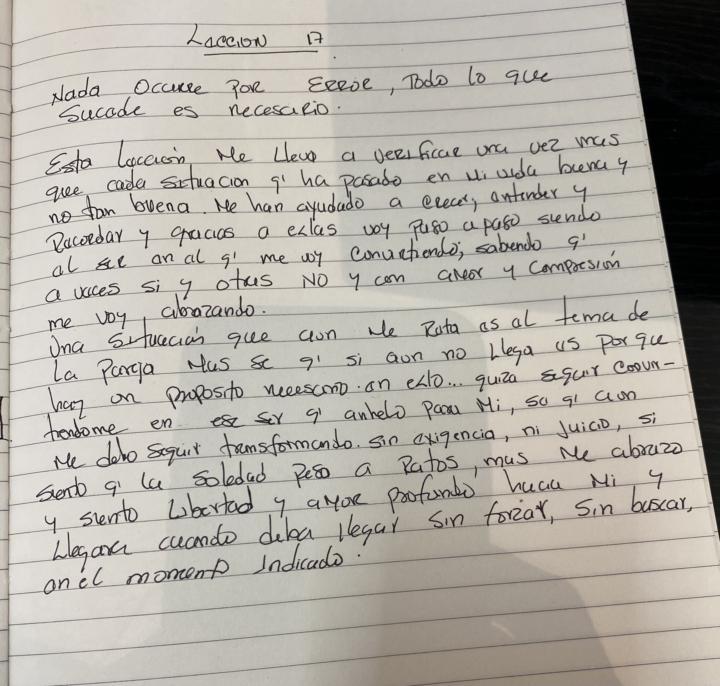 Lección 17
Nada Ocurre por Error, Todo lo que
Sucede es necesario.
Esta Lección Me llevo a verificar una vez mas
que cada Situacion q' ha pasado en Mi vida buena y
no tan buena. Me han ayudado a crecer, entender y
Recordar y gracias a ellas voy paso a paso siendo
el ser en el q' me voy convirtiendo; sabiendo q'
a veces si y otras NO y con amor y Compresión
me voy abrazando.
Una Situación que aun Me Reta es el tema de
La Pareja Mas se q' si aun no llega es porque
hay un proposito necesario en esto... quiza seguir Convir-
tiendome en ese ser q' anhelo para Mi, se q' aun
Me debo seguir transformando. sin exigencia, ni juicio, si
siento q' la soledad Pesa a Ratos, mas Me abrazo
y siento Libertad y amor profundo hacia Mi y
Llegara cuando deba llegar sin forzar, sin buscar,
en el momento Indicado.